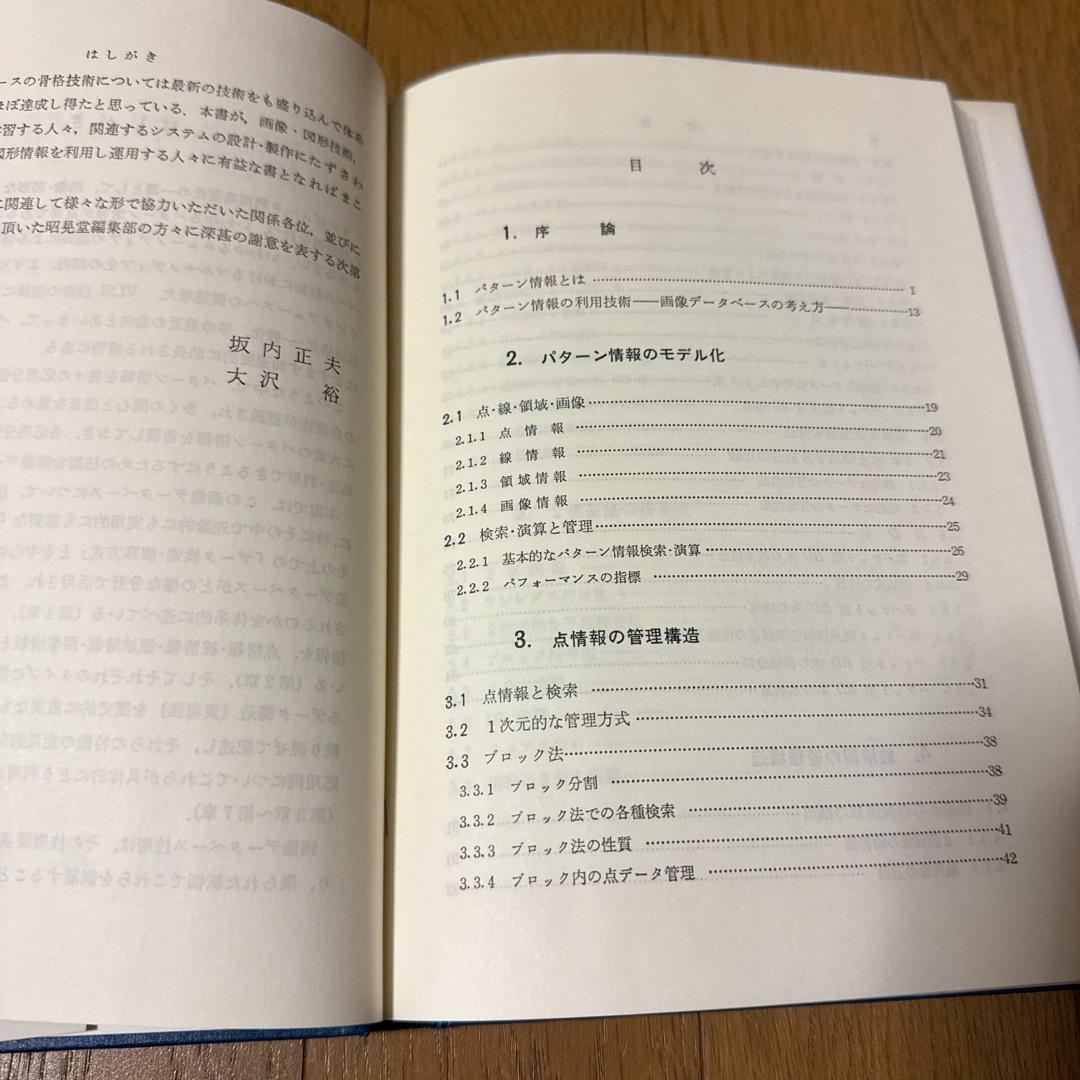 はしがき
ースの骨格技術については最新の技術をも盛り込んで体系
ほぼ達成し得たと思っている．本書が，画像・図形技術，
学習する人々，関連するシステムの設計・製作にたずさわ
図形情報を利用し運用する人々に有益な書となればまこ
に関連して様々な形で協力いただいた関係各位，並びに
頂いた昭晃堂編集部の方々に深甚の謝意を表する次第
坂内正夫
大沢　裕
目　次
1．序　論
1.1　パターン情報とは……1
1.2　パターン情報の利用技術――画像データベースの考え方――……13
2．パターン情報のモデル化
2.1　点・線・領域・画像……19
2.1.1　点情報……20
2.1.2　線情報……21
2.1.3　領域情報……23
2.1.4　画像情報……24
2.2　検索・演算と管理……25
2.2.1　基本的なパターン情報検索・演算……26
2.2.2　パフォーマンスの指標……29
3．点情報の管理構造
3.1　点情報と検索……31
3.2　1次元的な管理方式……34
3.3　ブロック法……38
3.3.1　ブロック分割……38
3.3.2　ブロック法での各種検索……39
3.3.3　ブロック法の性質……41
3.3.4　ブロック内の点データ管理……42